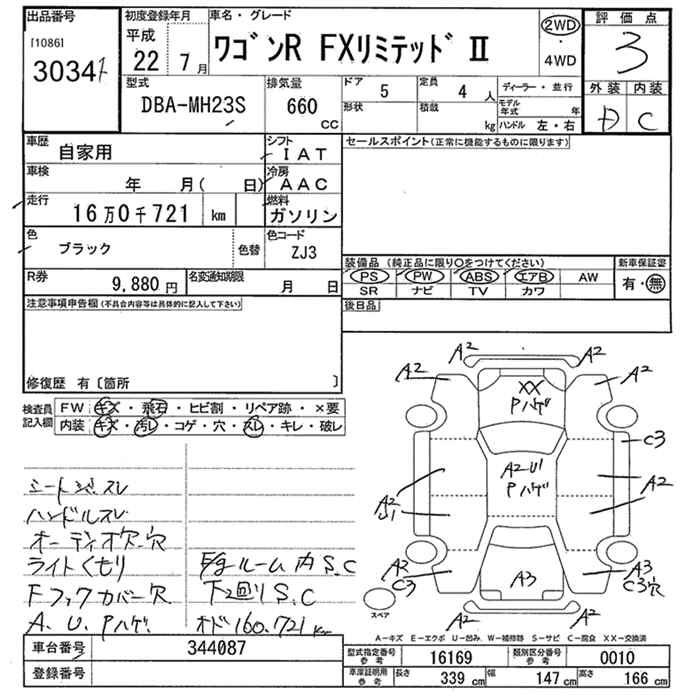 出品番号 初度登録年月 車名・グレード 評価点
[1086] 平成 ワゴンR FXリミテッド Ⅱ 2WD
22 7月 ・ 4WD 3
型式 排気量 ドア 5 定員 4 人 ディーラー・並行 外装 内装
DBA-MH23S 660 cc 形状 積載 kg モデル年式 年 D C
ハンドル 左・右
車歴 自家用 シフト IAT セールスポイント(正常に機能するものに限ります)
車検 年 月( 日) 冷房 AAC
走行 16万0千721 km 燃料 ガソリン
色 ブラック 色替 色コード ZJ3
装備品(純正品に限り○をつけてください) 新車保証書
R券 9,880円 名変通知期限 月 日 PS PW ABS エアB AW 有・無
SR ナビ TV カワ
注意事項申告欄(不具合内容等は具体的に記入して下さい) 後日品
修復歴 有〔箇所 〕
検査員 FW キズ・飛石・ヒビ割・リペア跡・×要
記入欄 内装 キズ・汚レ・コゲ・穴・スレ・キレ・破レ
A2 A2
A2 A2
XX
Pハゲ
C3
A2U1
Pハゲ
A2
U1
A2
A2
C3
A3
A3
C3穴
スペア
ハンドルスレ
オーディオ穴
ライトくもり ルーム内S.C
Fフックカバー欠 下回りS.C
A.U.Pハゲ オド160.721km
A−キズ E−エクボ U−凹み W−補修跡 S−サビ C−腐食 XX−交換済
車台番号 344087 型式指定番号 参考 16169 類別区分番号 参考 0010
登録番号 車庫証明用 参考 長さ 339cm 幅 147cm 高さ 166cm